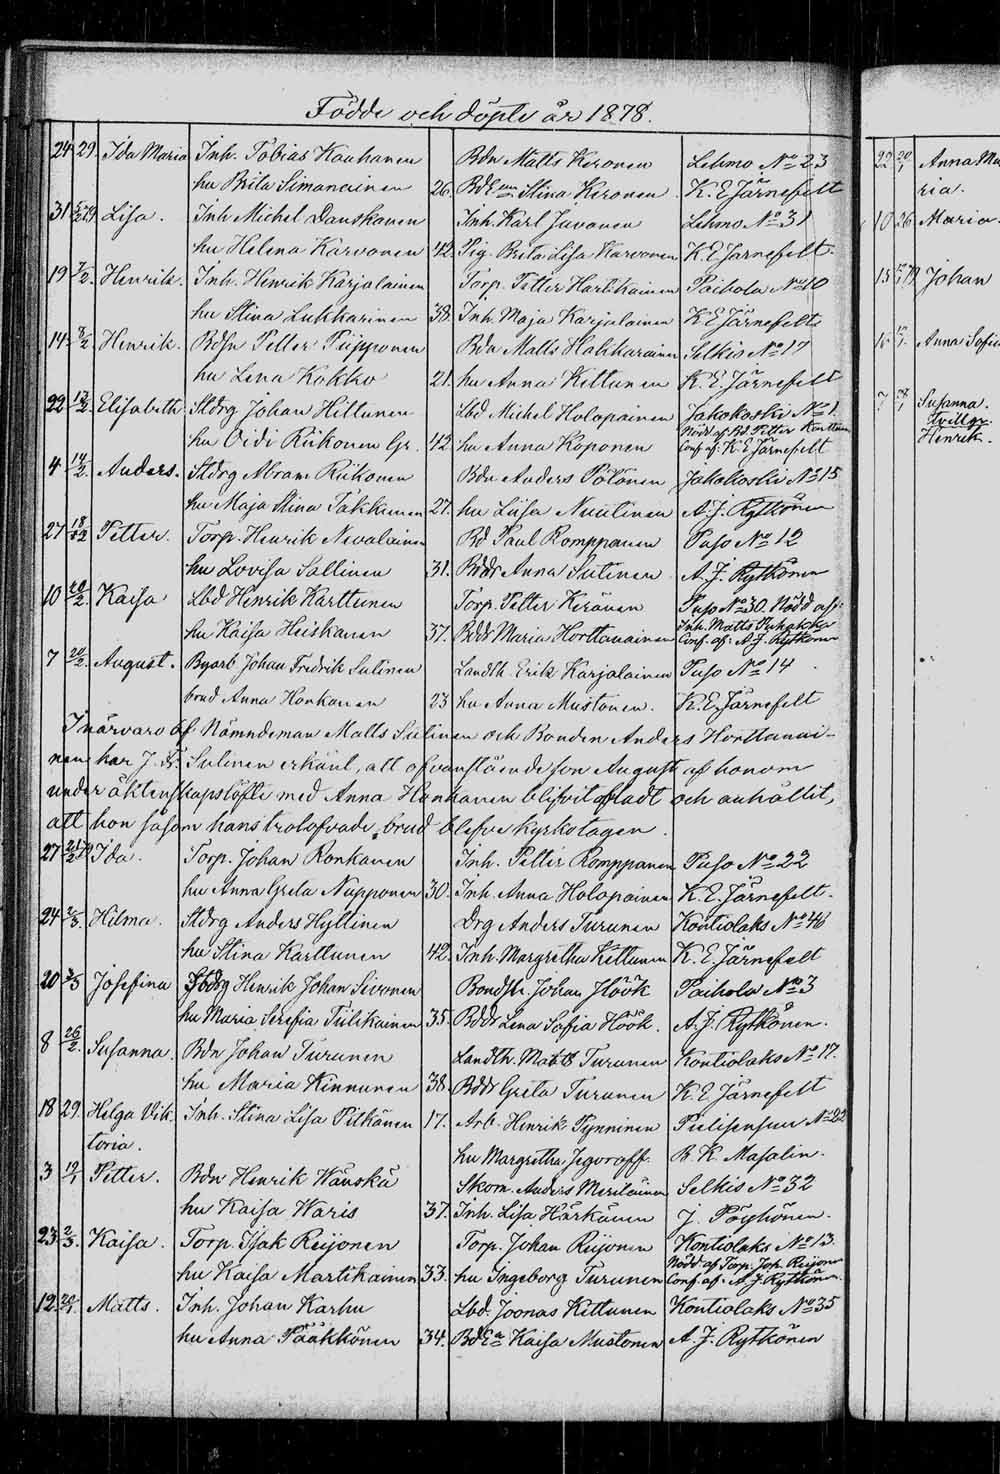 Födde och döpte år 1878.
24 29. Ida Maria Inh. Tobias Kauhanen Bdn Matts Keronen Lehmo No 23
hu Brita Simanainen 26. Stina Keronen K. E Järnefelt
31 Lisa. Inh Michel Danskanen Inh. Karl Juvonen Lehmo No 31
hu Helena Karvonen 42. Pig. Brita Lisa Karvonen K. E Järnefelt.
19 7/2. Henrik. Inh. Henrik Karjalainen Torp. Petter Hartikainen Paihola No 10
hu Stina Lukkarinen 38. Inh. Maja Karjalainen K E Järnefelt
14 8/2 Henrik. Bdsn Petter Piipponen Bdn Matts Hakkarainen Selkis No 17
hu Lena Kokko 21. hu Anna Kettunen K. E. Järnefelt
22 12/2. Elisabeth Stdrg Johan Hiltunen Lbd Michel Holopainen Jakokoski No 1.
Nödd. af Bd. Petter Karttunen
hu Oidi Riikonen Gr. 42 hu Anna Koponen Conf. af: K. E Järnefelt
4 14/2. Anders. Stdrg Abram Riikonen Bdn Anders Pölönen Jakokoski No 15
hu Maja Stina Takkunen 27. hu Liisa Nuutinen A. J. Rytkönen
27 18/2 Petter. Torp. Henrik Nevalainen Bd Paul Romppanen Puso No 12
hu Lovisa Sallinen 31. Bddr Anna Sutinen A. J. Rytkönen
10 20/2 Kaisa Lbd Henrik Karttunen Torp. Petter Keränen Puso No 30. Nödd af:
Inh. Matts Puhakka
hu Kaisa Heiskanen 37. Bddr Maria Horttanainen Conf. af: A. J. Rytkönen
7 20/2. August. Byarb Johan Fredrik Sutinen Landth. Erik Karjalainen Puso No 14
brud Anna Honkanen 23 hu Anna Mustonen. K. E. Järnefelt
I närvaro af Nämndeman Matts Sutinen och Bonden Anders Horttanai-
nen har J. Fr. Sutinen erkänt, att ofvanstående son August af honom
under äktenskapslöfte med Anna Honkanen blifvit afladt och anhållit,
att hon såsom hans trolofvade brud blefve kyrkotagen.
27 Ida. Torp. Johan Ronkanen Inh. Petter Romppanen Puso No 22
hu Anna Greta Nupponen 30. Inh. Anna Holopainen K. E. Järnefelt.
24 2/3. Hilma. Stdrg Anders Hyttinen Drg Anders Turunen Kontiolaks No 46
hu Stina Karttunen 42. Inh. Margretha Kettunen K. E Järnefelt
20 3/3 Josefina Henrik Johan Sivonen Johan Höök Paihola No 3
hu Maria Serefia Tiilikainen 35. Bddr Lena Sofia Höök. A. J. Rytkönen.
8 26/2. Susanna. Bdn Johan Turunen Landth. Matts Turunen Kontiolaks No 17.
hu Maria Kinnunen 38. Bddr Greta Turunen K. E Järnefelt
18 29. Helga Vik- Inh. Stina Lisa Pitkänen 17. Arb. Henrik Pynninen No 22
toria. hu Margretha Jegoroff. B. K. Masalin.
3 19/1 Petter. Bdn Henrik Wänskä Skom. Anders Meriläinen Selkis No 32
hu Kaisa Waris 37. Inh. Lisa Härkänen J. Pöyhönen.
23 2/3. Kaisa. Torp. Isak Reijonen Torp. Johan Reijonen Kontiolaks No 13.
Nödd af Torp. Joh. Reijonen
hu Kaisa Martikainen 33. hu Ingeborg Turunen Conf. af: A. J. Rytkönen.
12 Matts. Inh. Johan Karhu Lbd. Joonas Kettunen Kontiolaks No 35
hu Anna Pääkkönen 34. Kaisa Mustonen A. J. Rytkönen
22 Anna Ma
ria.
10 26 Maria.
15 Johan
Anna Sofia
7 Susanna.
tvillgr
Henrik.